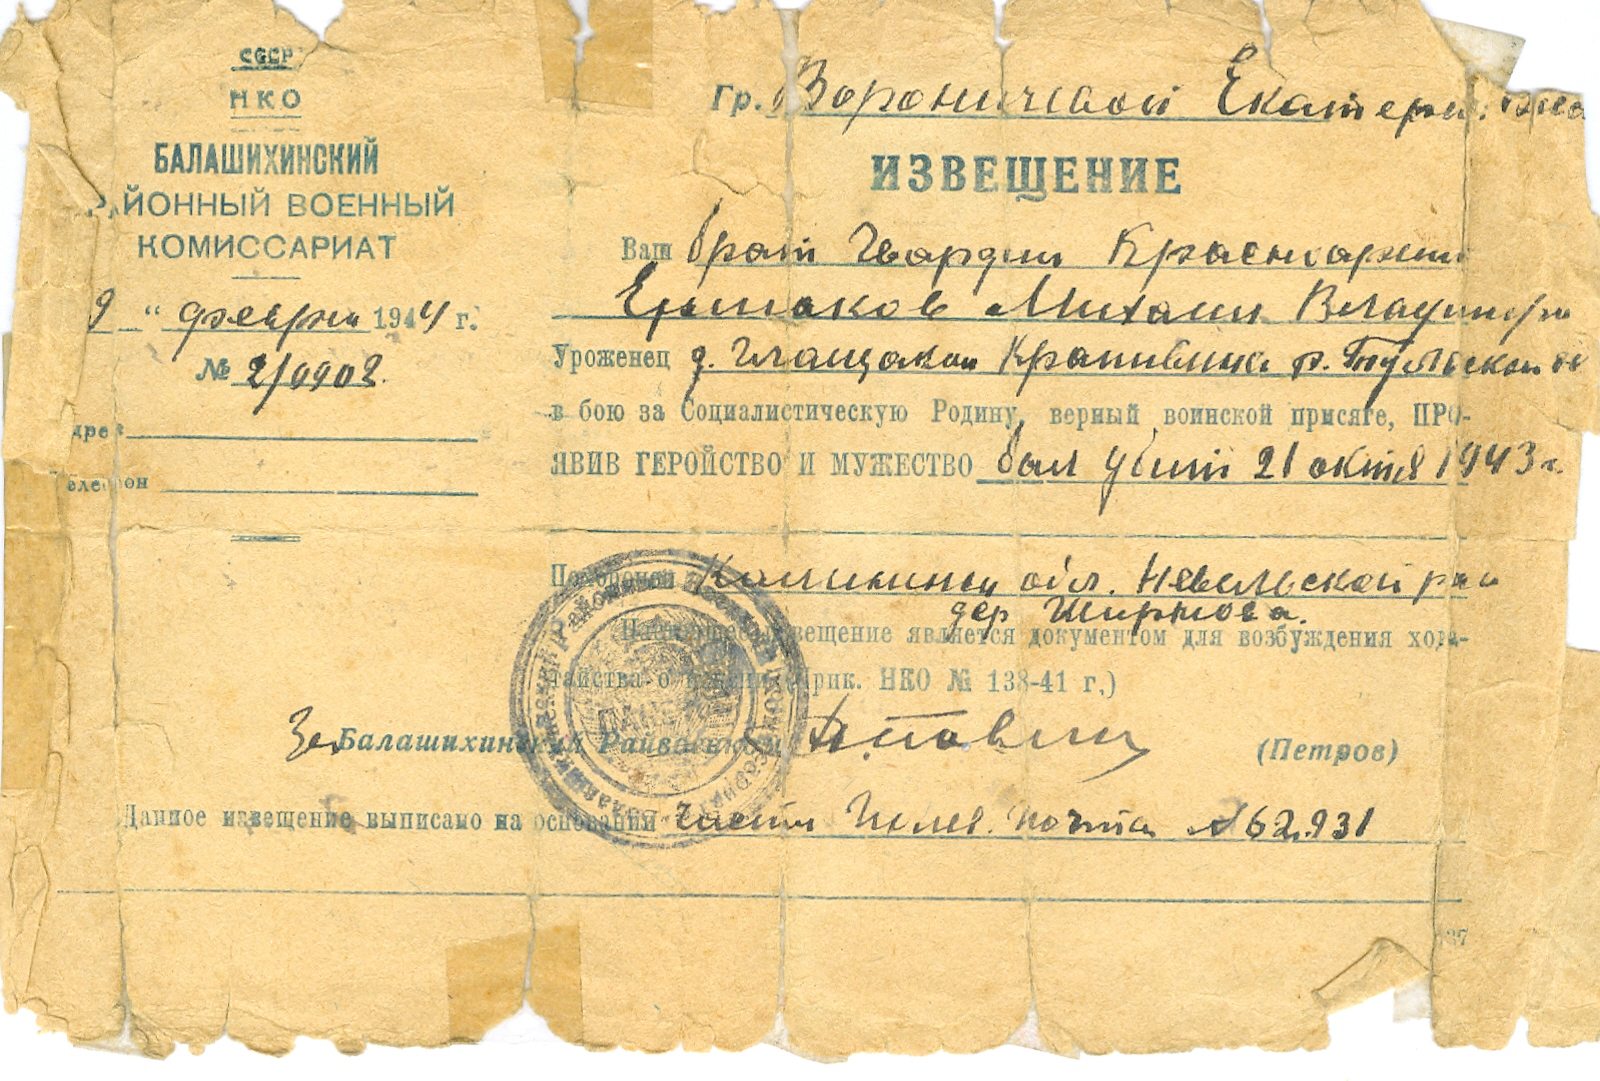 СССР
НКО
БАЛАШИХИНСКИЙ
РАЙОННЫЙ ВОЕННЫЙ
КОМИССАРИАТ
9 " февраля 1944 г.
№ 2/0902.
дрес
елефон
Гр. Ворони Екатерин
ИЗВЕЩЕНИЕ
Ваш брат Гвардии Красноармеец
Ермаков Михаил Владимиро
Уроженец д. Крапивинск р. Тульской об
в бою за Социалистическую Родину, верный воинской присяге, ПРО-
ЯВИВ ГЕРОЙСТВО И МУЖЕСТВО был убит 21 октя 1943 г.
Похоронен Калинин обл. Невельской рай
дер.
Настоящее извещение является документом для возбуждения хода-
тайства о пенсии (прик. НКО № 138-41 г.)
За Балашихинский Райвоенком (Петров)
Данное извещение выписано на основании части Полев. почта № 62931